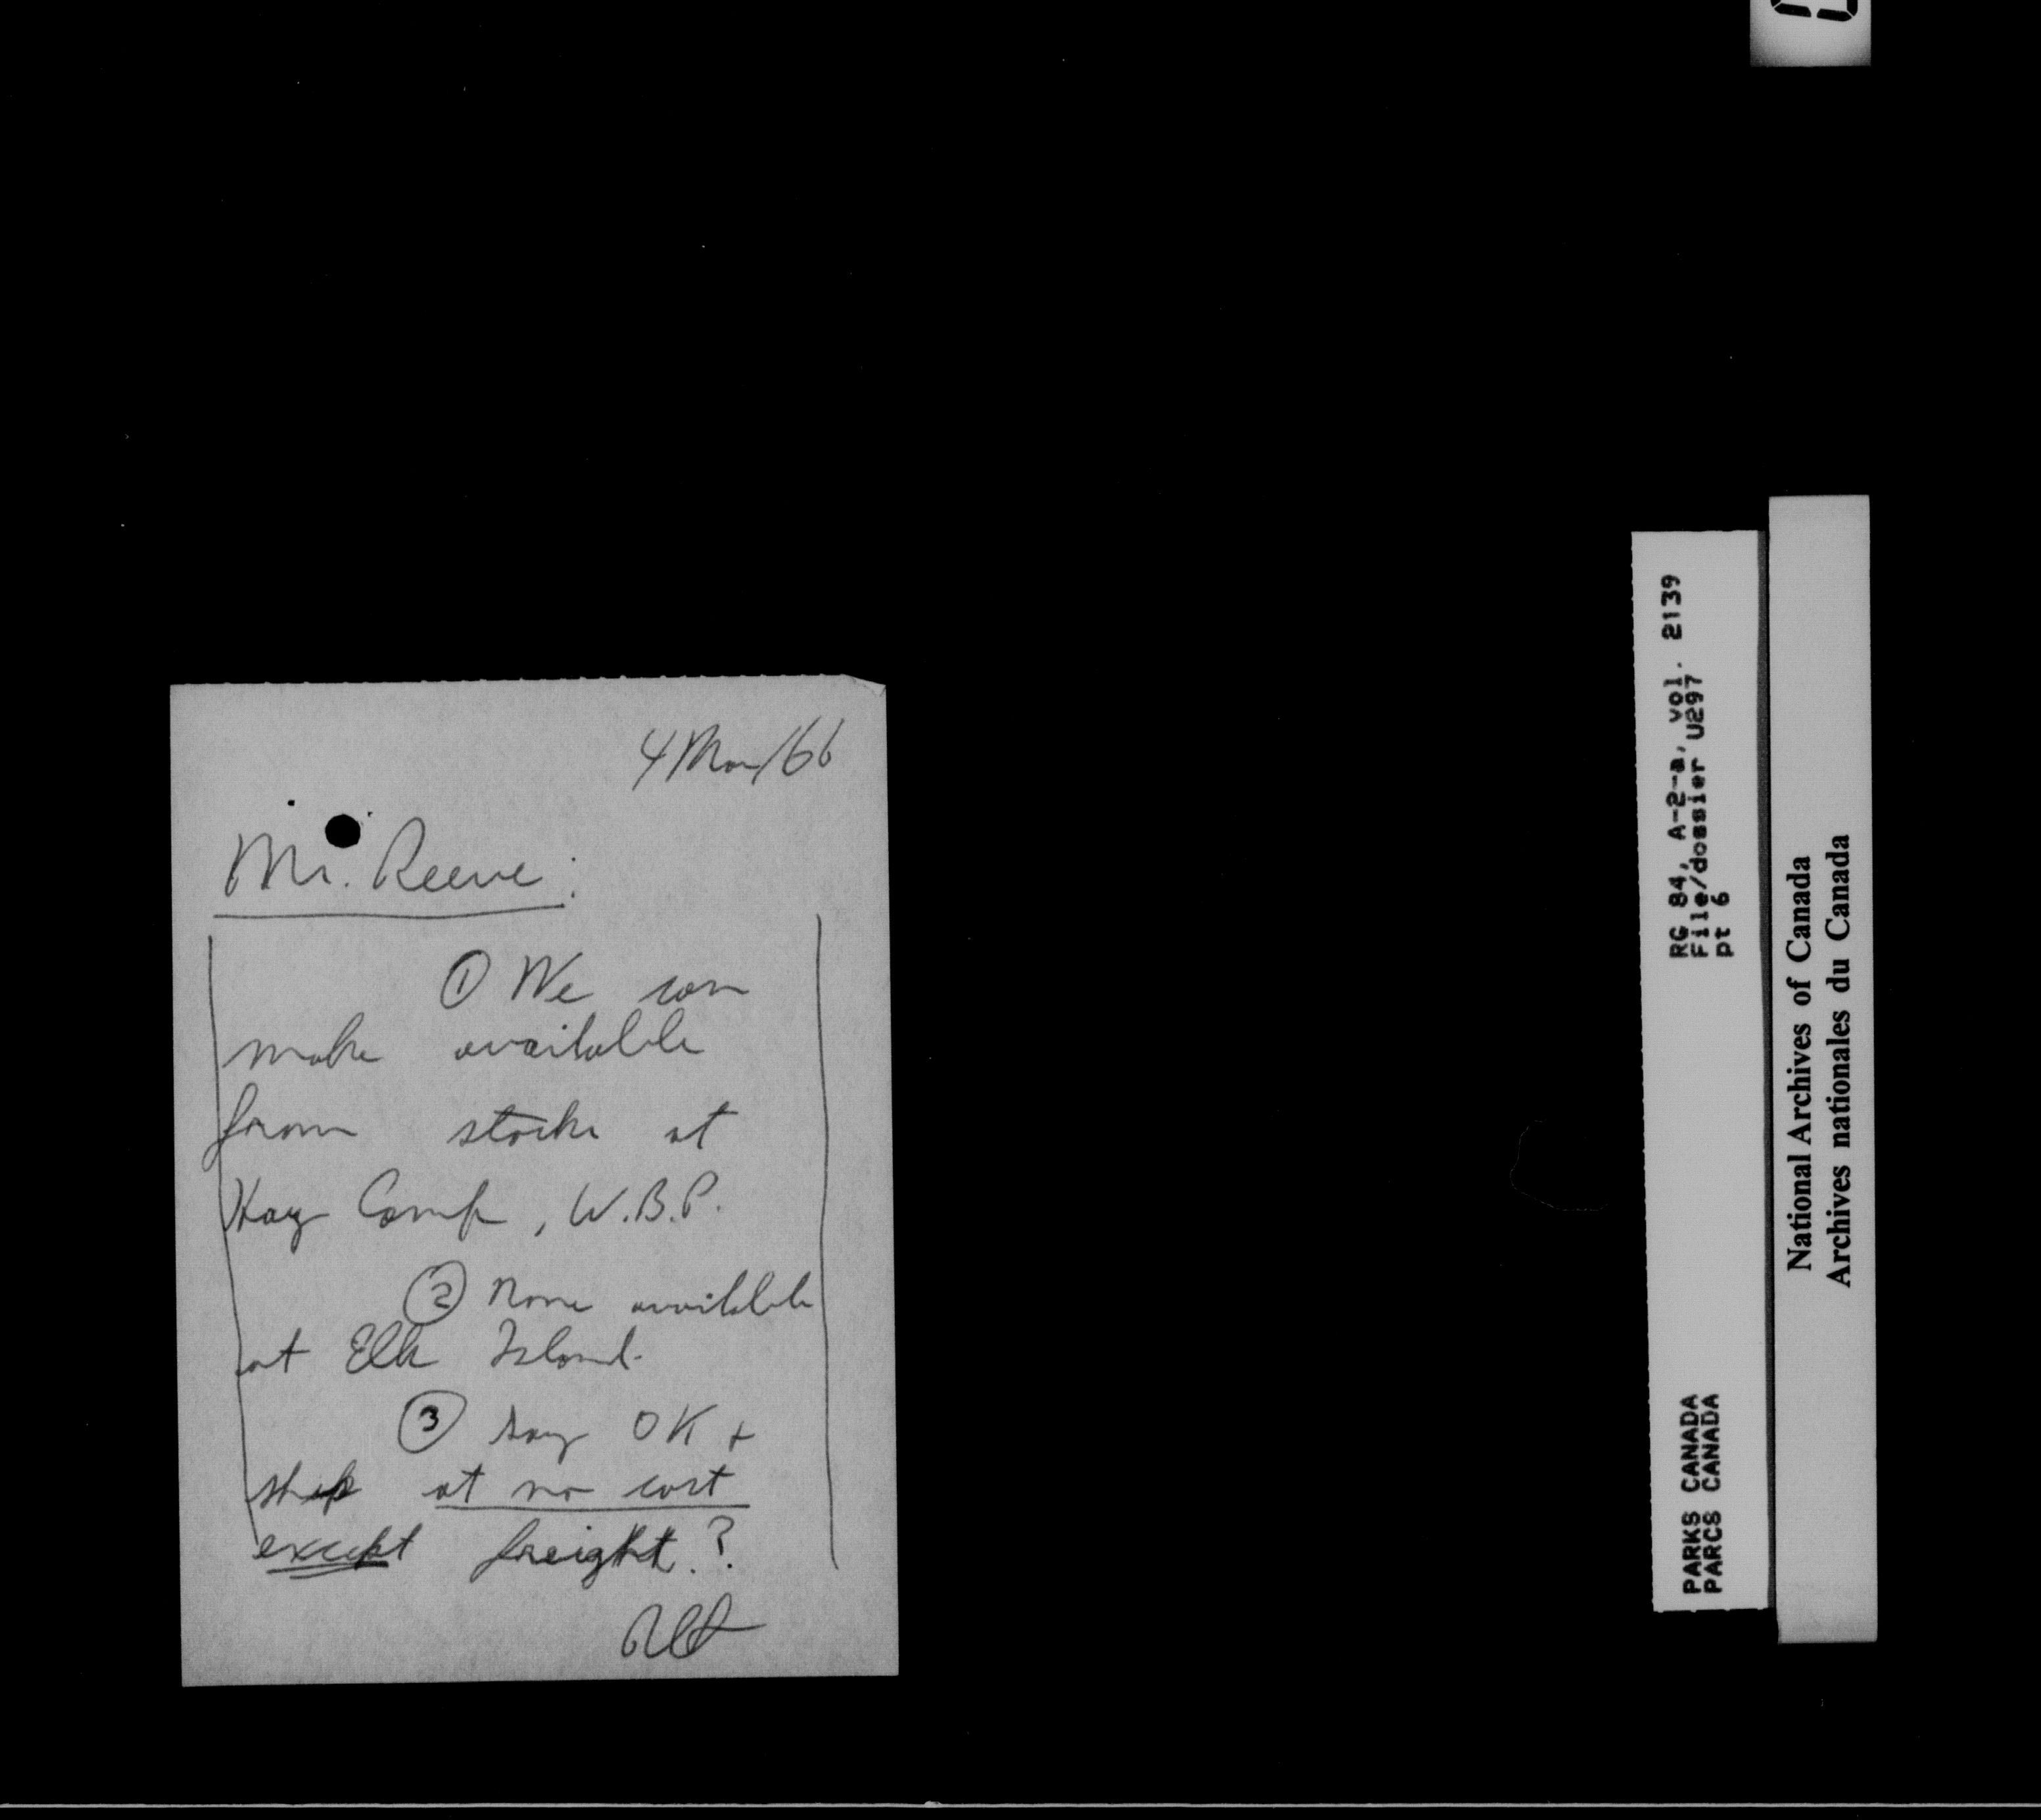 4 Mar/66
Mr. Reeve:
① We can
make available
from stocks at
Hay Camp, W.B.P.
② None available
at Elk Island.
③ Say OK +
ship at no cost
except freight.?
RG 84, A-2-a, vol. 2139
File/dossier U297
pt 6
PARKS CANADA
PARCS CANADA
National Archives of Canada
Archives nationales du Canada